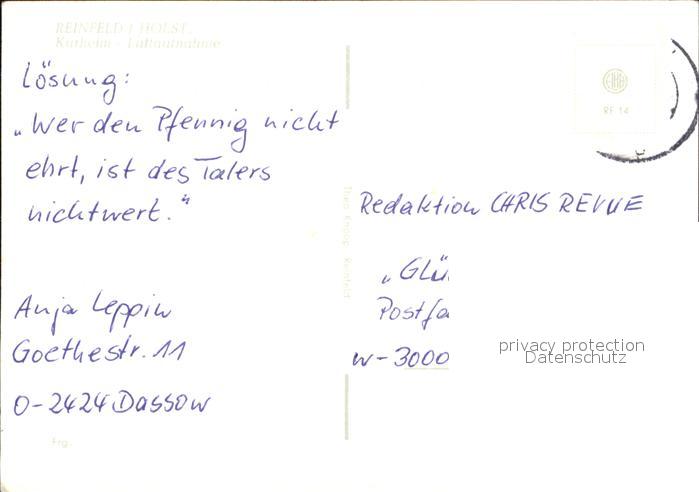 REINFELD / HOLST.
Kurheim - Luftaufnahme
Lösung:
„Wer den Pfennig nicht
ehrt, ist des Talers
nichtwert."
Anja Leppin
Goethestr. 11
O-2424 Dassow
Frg.
RF 14
Redaktion CHRIS REVUE
„Glü
Postfa
W-3000
privacy protection
Datenschutz